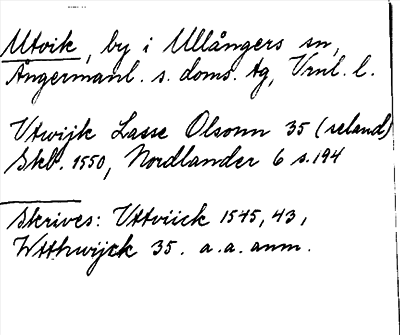 Utvik, by i Ullångers sn,
Ångermanl. s. doms. tg, Vrnl. l.
Utwijk Lasse Olsonn 35 (reland)
Skb. 1550, Nordlander 6 s. 194
Skrives: Uttviick 1545, 43,
Wtthwijck 35. a.a. anm.